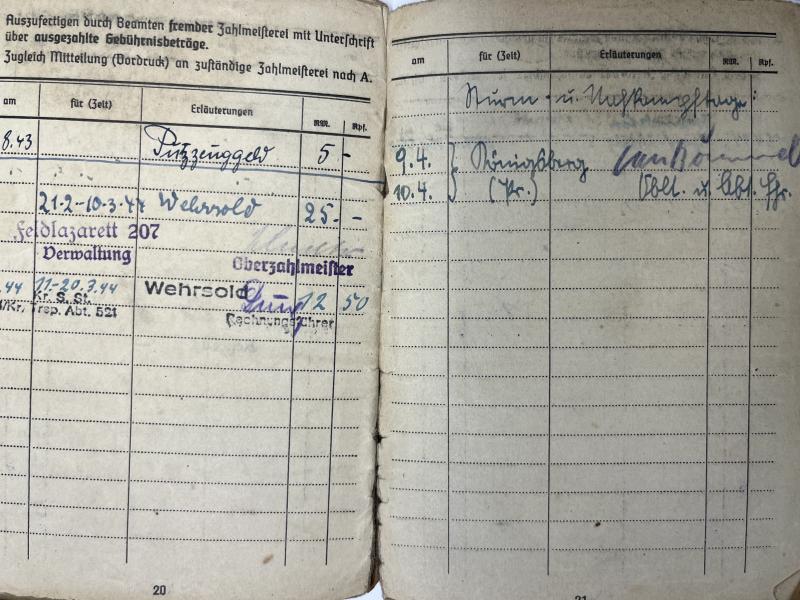 Auszufertigen durch Beamten fremder Zahlmeisterei mit Unterschrift
über ausgezahlte Gebührnisbeträge.
Zugleich Mitteilung (Vordruck) an zuständige Zahlmeisterei nach A.
am für (Zeit) Erläuterungen RM. Rpf.
8.43 Putzzeuggeld 5 -
21.2-10.3.44 Wehrsold 25. -
Feldlazarett 207
Verwaltung
Oberzahlmeister
.44 11.-20.3.44 Wehrsold 12 50
Kr. S. St.
/Kr. Trsp. Abt. 521
Rechnungsführer
20
am für (Zeit) Erläuterungen RM. Rpf.
Sturm- u. Nahkampftage:
9.4. } Königsberg
10.4. } (Pr.) Oblt. u. Abt. Fhr.
21